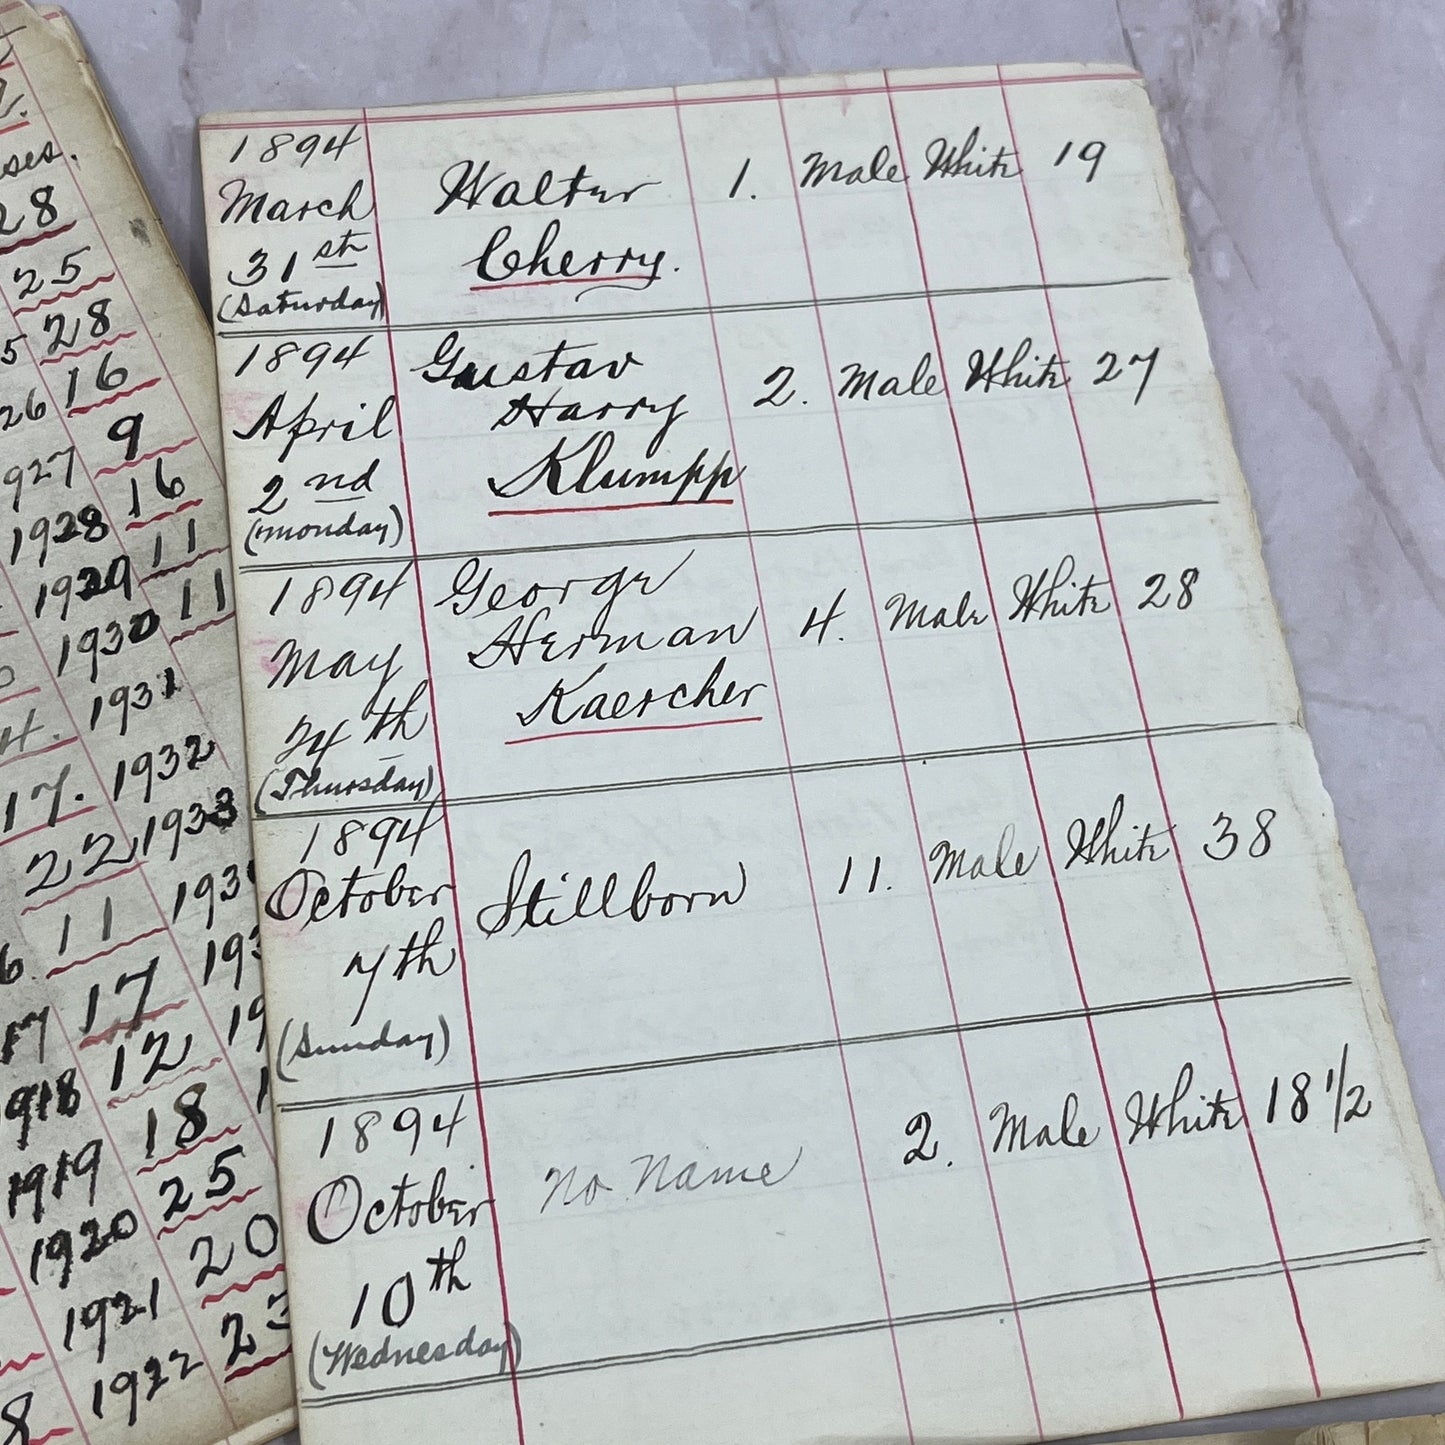 ses.
28
25
5 28
26 16
1927 9
1928 16
1929 11
1930 11
4. 1931
17. 1932
22 1933
11 193
17 17 193
1918 12 19
1919 18 1
1920 25
1921 20
8 1922 23
1894
March
31st
(Saturday)
Walter
Cherry.
1. Male White 19
1894
April
2nd
(Monday)
Gustav
Harry
Klumpp
2. Male White 27
1894
May
24th
(Thursday)
George
Herman
Kaercher
4. Male White 28
1894
October
7th
(Sunday)
Stillborn
11. Male White 38
1894
October
10th
(Wednesday)
No Name
2. Male White 18 1/2